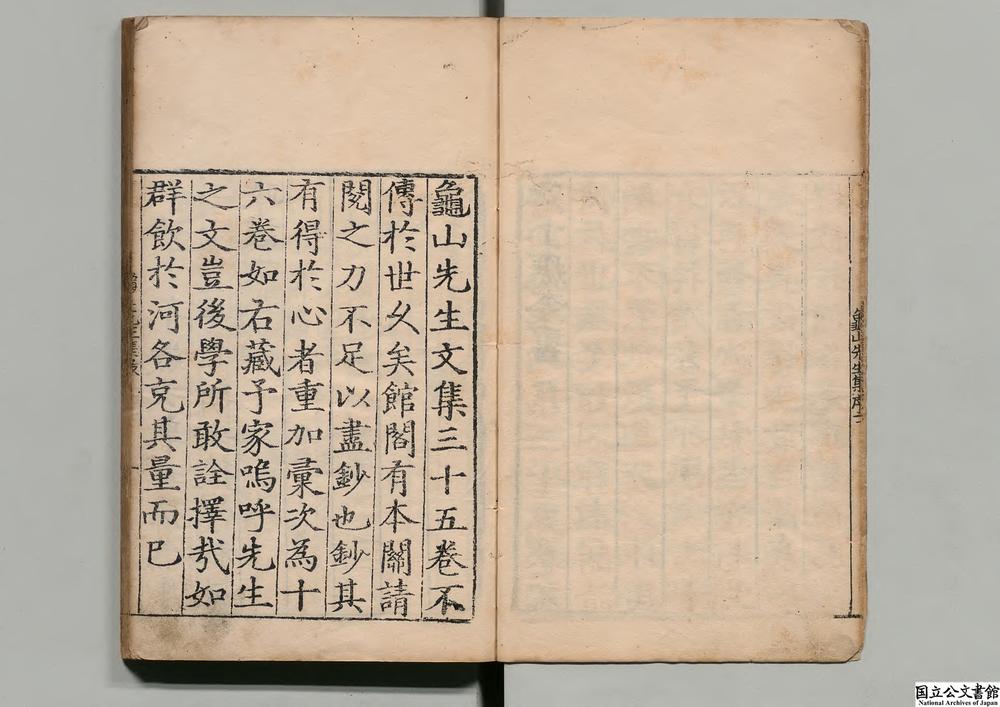 龜山先生文集三十五卷不
傳於世久矣館閣有本關請
閱之力不足以盡鈔也鈔其
有得於心者重加彙次為十
六卷如右藏予家嗚呼先生
之文豈後學所敢詮擇㢤如
群飲於河各克其量而已
龜山先生集序二
国立公文書館
National Archives of Japan